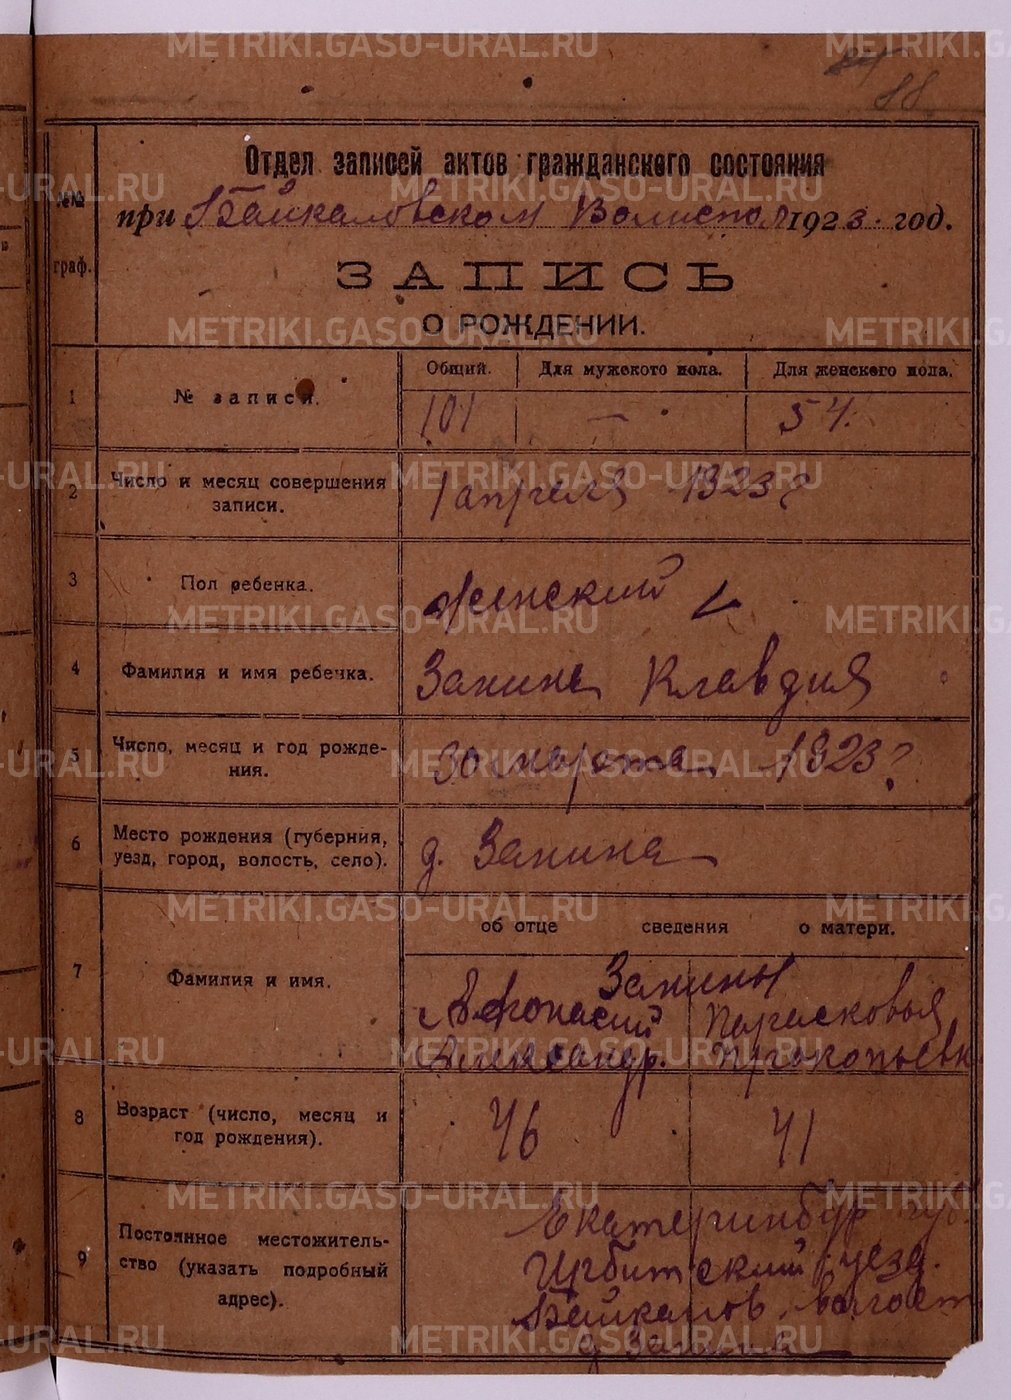 88
Отдел записей актов гражданского состояния
№№ при Байкаловском Волиспол 1923 год.
граф.
ЗАПИСЬ
О РОЖДЕНИИ.
Общий. Для мужского пола. Для женского пола.
1 № записи. 101 — 54.
2 Число и месяц совершения записи. 1 апреля 1923 г
3 Пол ребенка. Женский
4 Фамилия и имя ребенка. Занина Клавдия
5 Число, месяц и год рождения. 30 марта 1923 г
6 Место рождения (губерния, уезд, город, волость, село). д. Занина
об отце сведения о матери.
7 Фамилия и имя. Занины
Афонасий Парасковья
Александр. Прокопьевн
8 Возраст (число, месяц и год рождения). 46 41
9 Постоянное местожительство (указать подробный адрес). Екатеринбур. губ.
Ирбитский уезд.
Байкалов. волост
д Занина
METRIKI.GASO-URAL.RU